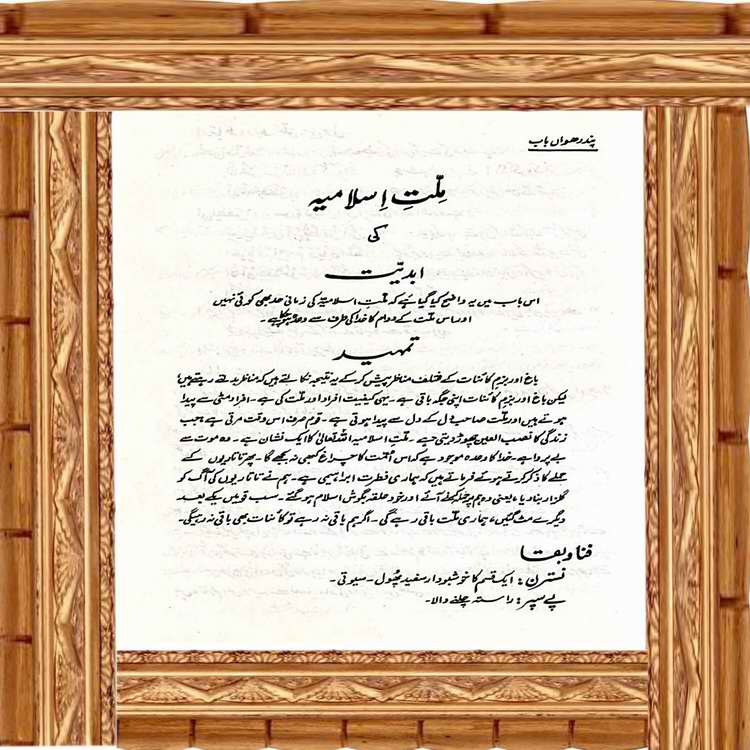 پندرھواں باب
ملّتِ اسلامیہ
کی
ابدیّت
اس باب میں یہ واضح کیا گیا ہے کہ ملّتِ اسلامیہ کی زمانی حد بھی کوئی نہیں
اور اس ملّت کے دوام کا خدا کی طرف سے وعدہ ہو چکا ہے۔
تمہید
باغ اور بزمِ کائنات کے مختلف مناظر پیش کر کے یہ نتیجہ نکالتے ہیں کہ مناظر بدلتے رہتے ہیں
لیکن باغ اور بزمِ کائنات اپنی جگہ باقی ہے۔ یہی کیفیت افراد اور ملّت کی ہے۔ افراد مٹی سے پیدا
ہوتے ہیں اور ملّت صاحبِ دل کے دل سے پیدا ہوتی ہے۔ قوم صرف اس وقت مرتی ہے جب
زندگی کا نصب العین چھوڑ دیتی ہے۔ ملّتِ اسلامیہ اللہ تعالیٰ کا ایک نشان ہے۔ وہ موت سے
بے پروا ہے۔ خدا کا وعدہ موجود ہے کہ اس امّت کا چراغ کبھی نہ بجھے گا۔ پھر تاتاریوں کے
حملے کا ذکر کرتے ہوئے فرماتے ہیں کہ ہماری فطرت ابراہیمی ہے۔ ہم نے تاتاریوں کی آگ کو
گلزار بنا دیا، یعنی وہ ہم پر حملہ کرنے آئے اور خود حلقہ بگوشِ اسلام ہو گئے۔ سب قومیں یکے بعد
دیگرے مٹ گئیں، ہماری ملّت باقی رہے گی۔ اگر ہم باقی نہ رہے تو کائنات بھی باقی نہ رہیگی۔
فنا و بقا
نسترن: ایک قسم کا خوشبودار سفید پھول۔ سیوتی۔
پے سپر: راستہ چلنے والا۔